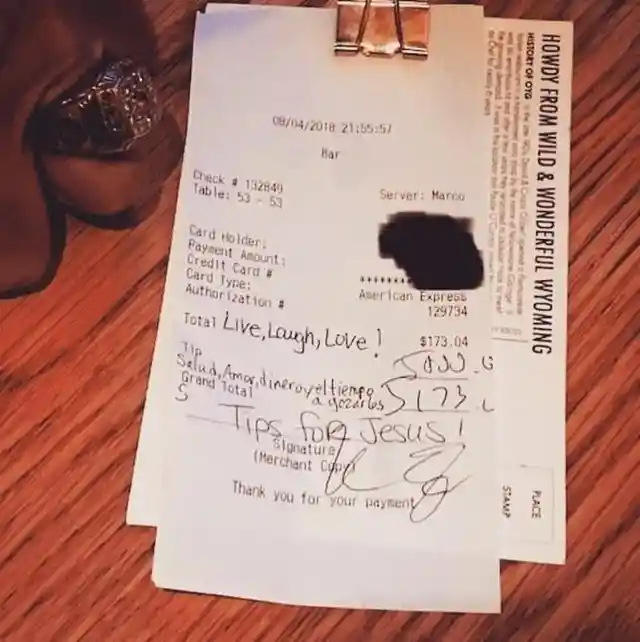 09/04/2018 21:55:57
Bar
Check # 132849
Server: Marco
Table: 53 - 53
Card Holder:
Payment Amount:
Credit Card # *******
Card Type: American Express
Authorization # 129734
Total Live, Laugh, Love! $173.04
Tip 5000.
Salud, Amor, dinero y el tiempo
a gozarlos
Grand Total 5173.
$
Tips for Jesus!
Signature
(Merchant Copy)
Thank you for your payment
HOWDY FROM WILD & WONDERFUL WYOMING
HISTORY OF OYG
PLACE
STAMP